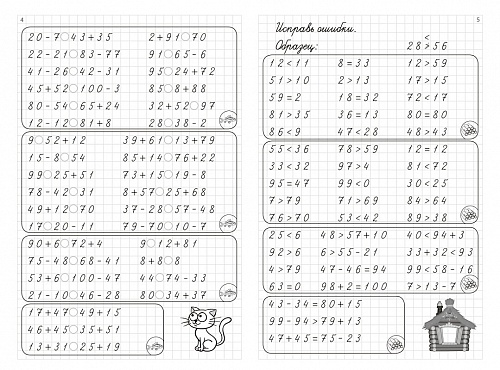 4
20-7○43+35 2+91○70
22-21○83-77 91○65-6
41-26○42-31 95○24+72
45+52○100-3 85○8+88
80-54○65+24 32+52○97
12-12○81+8 28○38-2
9○52+12 39+61○13+79
15-8○54 85+14○76+22
99○25+51 73+15○19-8
78-42○31 8+57○25+68
49+12○70 37-28○57-48
17○20-11 79-70○10-7
90+6○72+4 9○12+81
75-48○68-41 8+8○8
53+6○100-47 44○74-33
21-10○46-28 80○34+37
17+47○49+15
46+45○35+51
13+31○25+19
5
Исправь ошибки.
<
Образец: 28>56
12<11 8=33 12>59
51>10 2>13 17>15
59=2 18=32 72<17
81>35 36=13 80=80
86<9 47<28 48>43
55<36 78>59 12=12
33<32 97>4 81<72
95=47 99<0 30<25
7>79 71>69 84>64
76>70 53<42 89>38
25<6 48>57+10 40<94+3
92>6 6>55-21 33+32<93
4>79 47-46=94 99<58-16
63=0 98+2=100 7>13-7
43-34=80+15
99-94>79+13
47+45=75-23